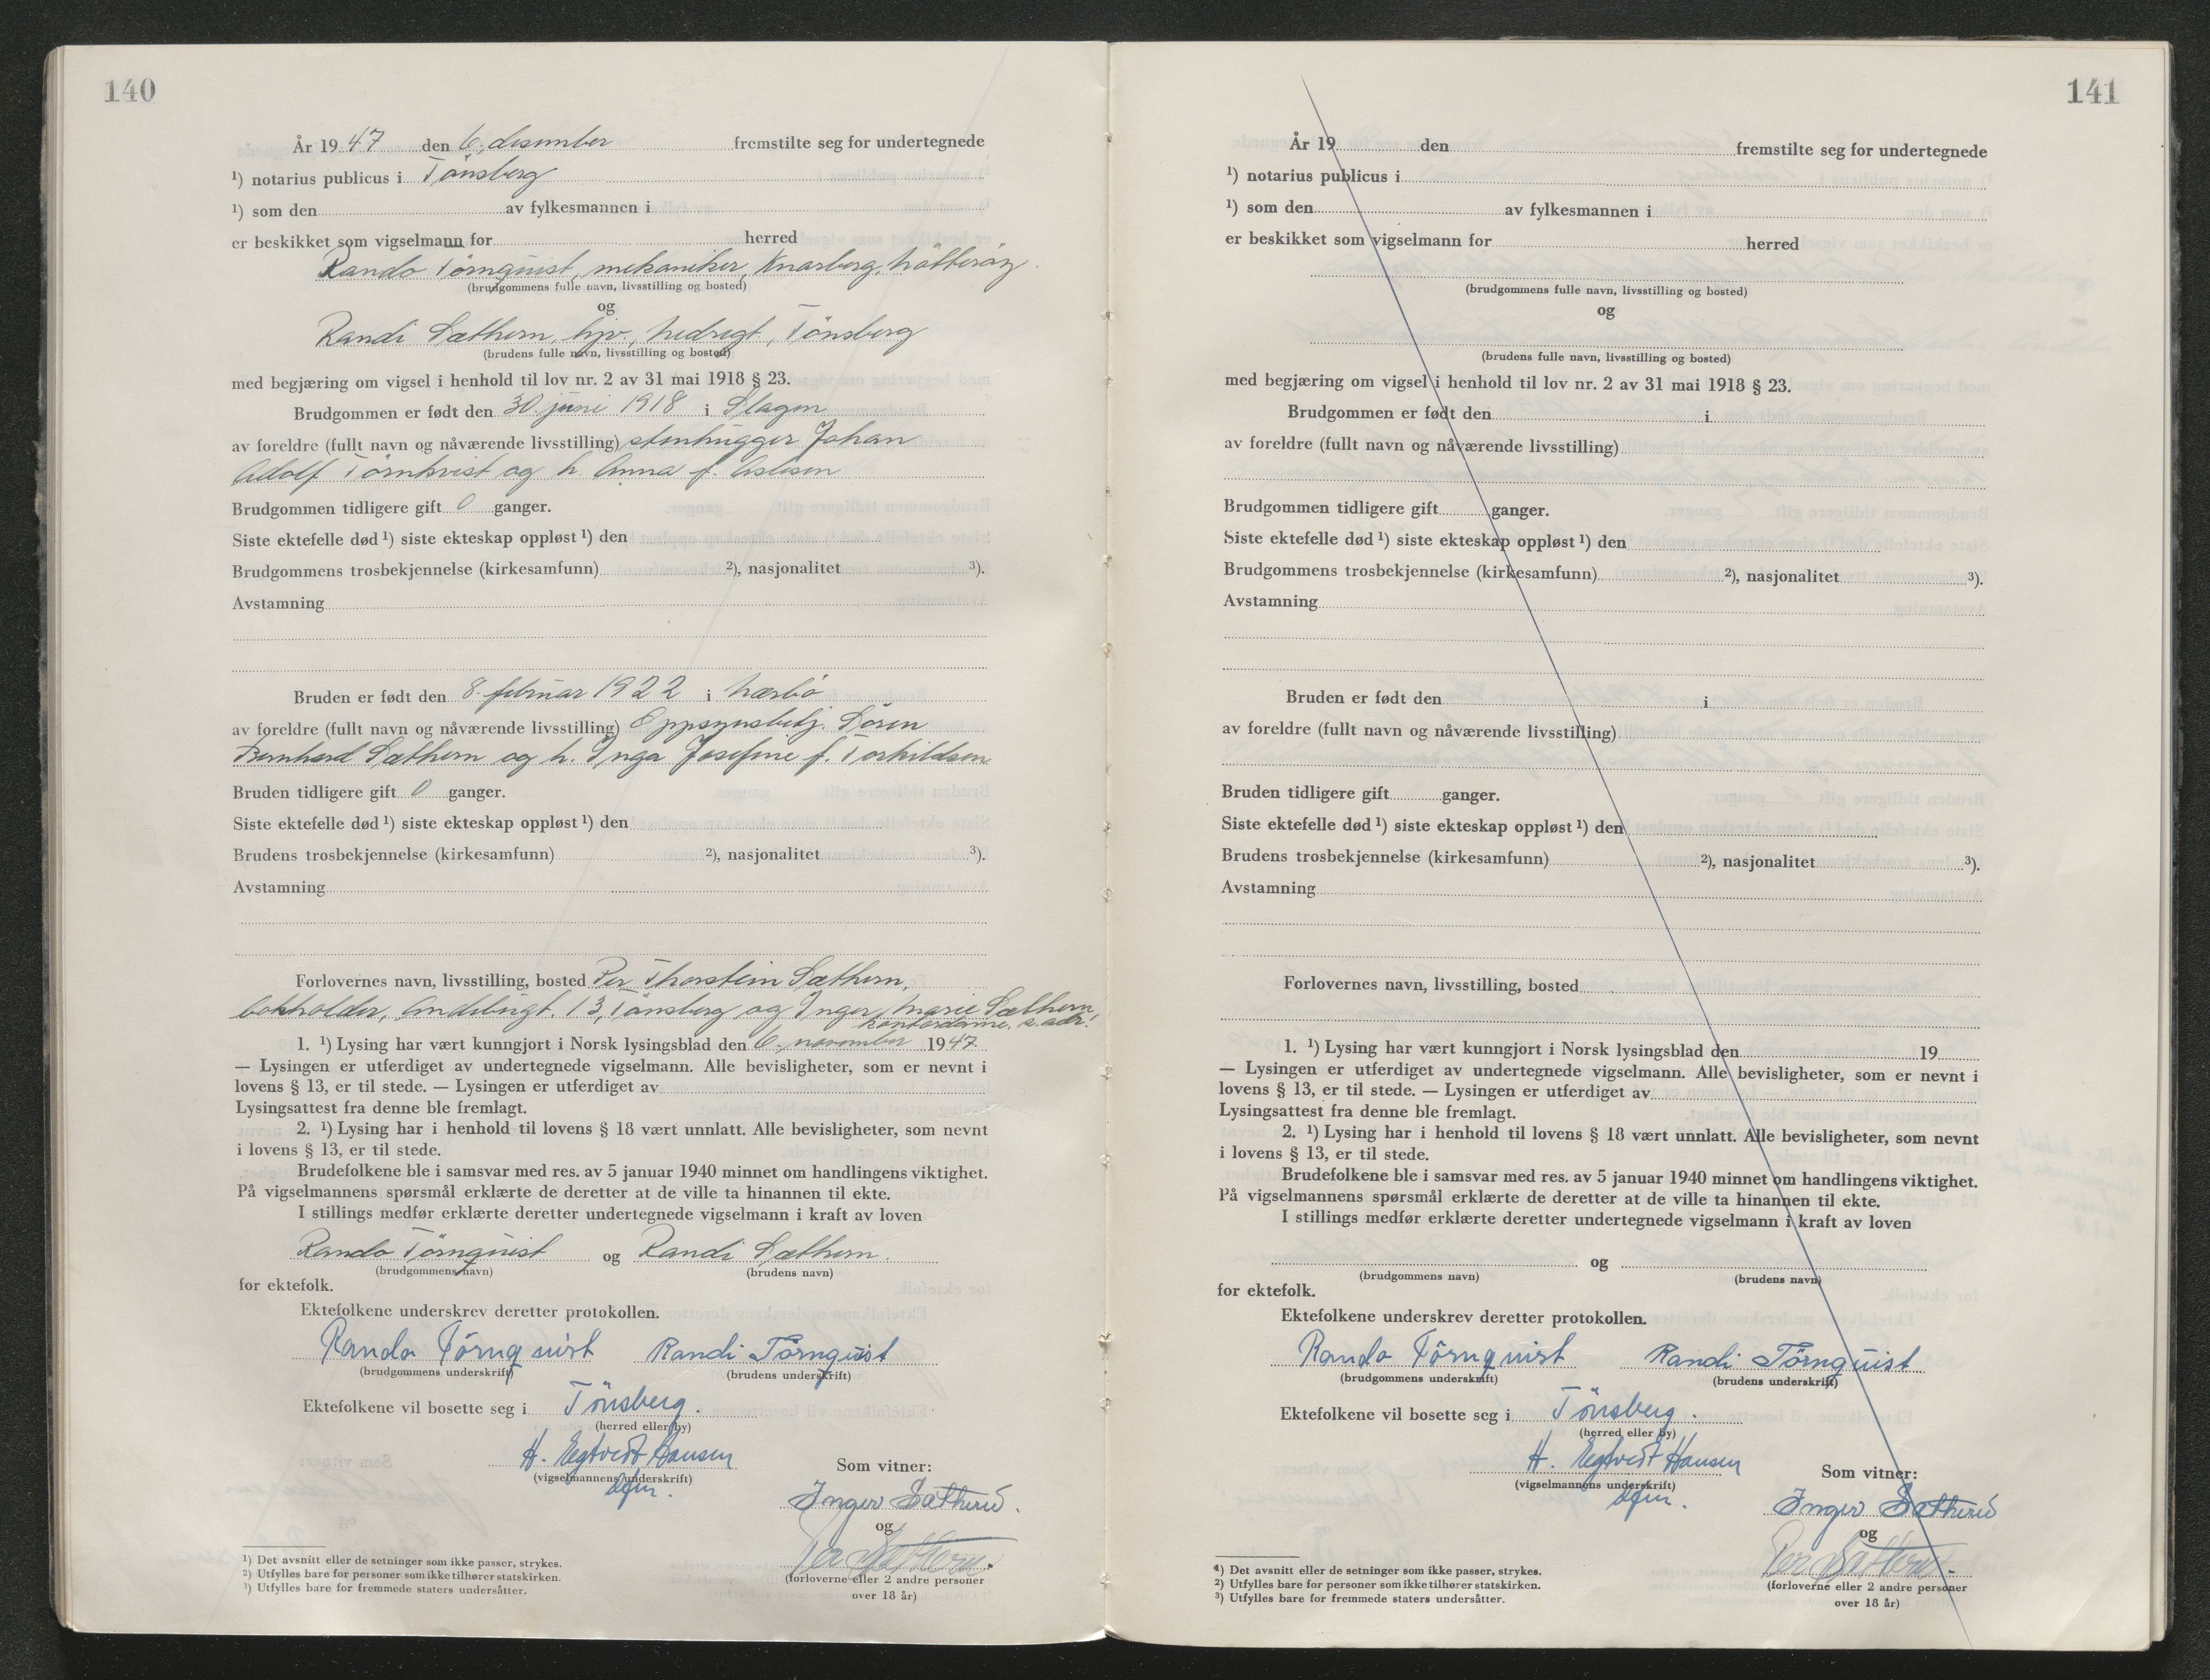 140
År 1947 den 6. desember fremstilte seg for undertegnede
¹) notarius publicus i Tönsberg
¹) som den av fylkesmannen i
er beskikket som vigselmann for herred
Rando Törnquist, mekaniker, Knarberg, Nötteröy
(brudgommens fulle navn, livsstilling og bosted)
og
Randi Sæthern, hjv., Nedregt., Tönsberg
(brudens fulle navn, livsstilling og bosted)
med begjæring om vigsel i henhold til lov nr. 2 av 31 mai 1918 § 23.
Brudgommen er født den 30. juni 1918 i Slagen
av foreldre (fullt navn og nåværende livsstilling) stenhugger Johan
Adolf Törnkvist og h. Anna f. Aslesen
Brudgommen tidligere gift 0 ganger.
Siste ektefelle død ¹) siste ekteskap oppløst ¹) den
Brudgommens trosbekjennelse (kirkesamfunn) ²), nasjonalitet ³).
Avstamning
Bruden er født den 8. februar 1922 i Nærbö
av foreldre (fullt navn og nåværende livsstilling) Oppsynsbetj. Sören
Bernhard Sæthern og h. Inga Josefine f. Torkildsen
Bruden tidligere gift 0 ganger.
Siste ektefelle død ¹) siste ekteskap oppløst ¹) den
Brudens trosbekjennelse (kirkesamfunn) ²), nasjonalitet ³).
Avstamning
Forlovernes navn, livsstilling, bosted Per Thorstein Sæthern,
bokholder, 13, Tönsberg og Inger Marie Sæthern,
kontordame, s. adr.
1. ¹) Lysing har vært kunngjort i Norsk lysingsblad den 6. november 1947
— Lysingen er utferdiget av undertegnede vigselmann. Alle bevisligheter, som er nevnt i
lovens § 13, er til stede. — Lysingen er utferdiget av
Lysingsattest fra denne ble fremlagt.
2. ¹) Lysing har i henhold til lovens § 18 vært unnlatt. Alle bevisligheter, som nevnt
i lovens § 13, er til stede.
Brudefolkene ble i samsvar med res. av 5 januar 1940 minnet om handlingens viktighet.
På vigselmannens spørsmål erklærte de deretter at de ville ta hinannen til ekte.
I stillings medfør erklærte deretter undertegnede vigselmann i kraft av loven
Rando Törnquist og Randi Sæthern.
(brudgommens navn) (brudens navn)
for ektefolk.
Ektefolkene underskrev deretter protokollen.
Rando Törnquist Randi Törnquist
(brudgommens underskrift) (brudens underskrift)
Ektefolkene vil bosette seg i Tönsberg.
(herred eller by)
H. Egtvedt Hansen
(vigselmannens underskrift)
dfm.
Som vitner:
Inger Sæthern
og
Per Sæthern.
(forloverne eller 2 andre personer
over 18 år)
¹) Det avsnitt eller de setninger som ikke passer, strykes.
²) Utfylles bare for personer som ikke tilhører statskirken.
³) Utfylles bare for fremmede staters undersåtter.
141
År 19 den fremstilte seg for undertegnede
¹) notarius publicus i
¹) som den av fylkesmannen i
er beskikket som vigselmann for herred
(brudgommens fulle navn, livsstilling og bosted)
og
(brudens fulle navn, livsstilling og bosted)
med begjæring om vigsel i henhold til lov nr. 2 av 31 mai 1918 § 23.
Brudgommen er født den i
av foreldre (fullt navn og nåværende livsstilling)
Brudgommen tidligere gift ganger.
Siste ektefelle død ¹) siste ekteskap oppløst ¹) den
Brudgommens trosbekjennelse (kirkesamfunn) ²), nasjonalitet ³).
Avstamning
Bruden er født den i
av foreldre (fullt navn og nåværende livsstilling)
Bruden tidligere gift ganger.
Siste ektefelle død ¹) siste ekteskap oppløst ¹) den
Brudens trosbekjennelse (kirkesamfunn) ²), nasjonalitet ³).
Avstamning
Forlovernes navn, livsstilling, bosted
1. ¹) Lysing har vært kunngjort i Norsk lysingsblad den 19
— Lysingen er utferdiget av undertegnede vigselmann. Alle bevisligheter, som er nevnt i
lovens § 13, er til stede. — Lysingen er utferdiget av
Lysingsattest fra denne ble fremlagt.
2. ¹) Lysing har i henhold til lovens § 18 vært unnlatt. Alle bevisligheter, som nevnt
i lovens § 13, er til stede.
Brudefolkene ble i samsvar med res. av 5 januar 1940 minnet om handlingens viktighet.
På vigselmannens spørsmål erklærte de deretter at de ville ta hinannen til ekte.
I stillings medfør erklærte deretter undertegnede vigselmann i kraft av loven
og
(brudgommens navn) (brudens navn)
for ektefolk.
Ektefolkene underskrev deretter protokollen.
Rando Törnquist Randi Törnquist
(brudgommens underskrift) (brudens underskrift)
Ektefolkene vil bosette seg i Tönsberg.
(herred eller by)
H. Egtvedt Hansen
(vigselmannens underskrift)
dfm.
Som vitner:
Inger Sæthern
og
Per Sæthern.
(forloverne eller 2 andre personer
over 18 år)
¹) Det avsnitt eller de setninger som ikke passer, strykes.
²) Utfylles bare for personer som ikke tilhører statskirken.
³) Utfylles bare for fremmede staters undersåtter.